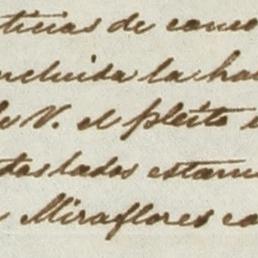 ticias de como
ncluida la ha
e V. el pleito
dos lados estam
Miraflores co